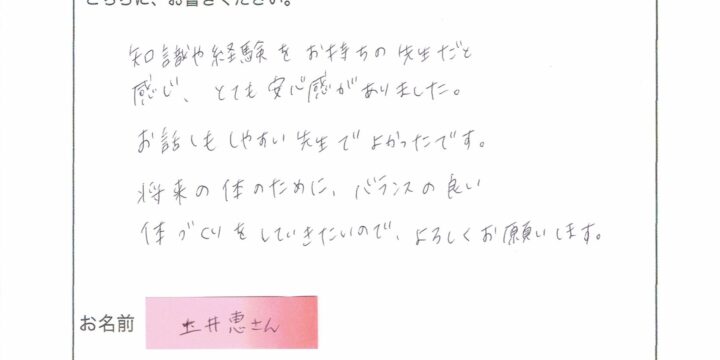 こちらに、お書きください。
知識や経験をお持ちの先生だと
感じ、とても安心感がありました。
お話しもしやすい先生でよかったです。
将来の体のために、バランスの良い
体づくりをしていきたいので、よろしくお願いします。
お名前 土井恵さん